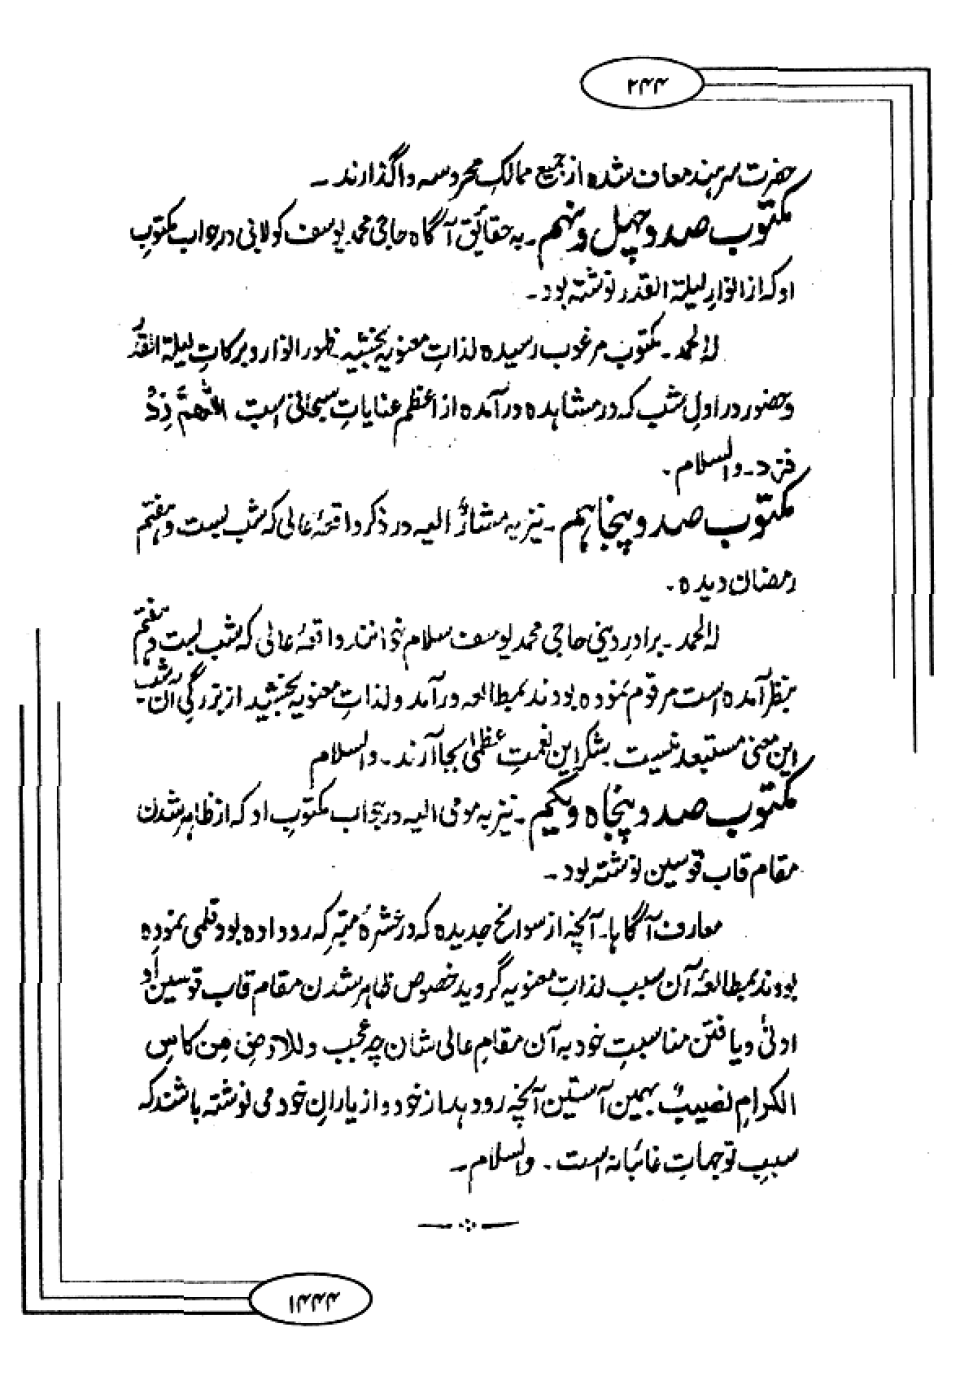 ۲۴۴
حضرت سرہند معاف شدہ از جمیع ممالکِ محروسہ واگذارند ۔
مکتوب صد و چہل و نہم ۔ بہ حقائق آگاہ حاجی محمد یوسف کولابی در جواب مکتوبِ
او کہ از انوارِ لیلۃ القدر نوشتہ بود ۔
للہ الحمد ۔ مکتوب مرغوب رسیدہ لذاتِ معنویہ بخشید ظہور انوار و برکاتِ لیلۃ القدر
و حضور در اولِ شب کہ در مشاہدہ در آمدہ از اعظم عنایاتِ سبحانی است اللّٰھمّ زِدْ
فزد ۔ والسلام ۔
مکتوب صد و پنجاہم ۔ نیز بہ مشارٌ الیہ در ذکر واقعۂ عالی کہ شب بست و ہفتم
رمضان دیدہ ۔
للہ الحمد ۔ برادرِ دینی حاجی محمد یوسف سلام خوانند واقعۂ عالی کہ شب بست و ہفتم
بنظر آمدہ است مرقوم نمودہ بودند بمطالعہ در آمد و لذاتِ معنویہ بخشید از بزرگیِ آن شب
این معنی مستبعد نیست بشکرِ این نعمتِ عظمیٰ بجا آرند ۔ والسلام
مکتوب صد و پنجاہ و یکم ۔ نیز بہ مومی الیہ در جواب مکتوبِ او کہ از ظاہر شدن
مقام قاب قوسین نوشتہ بود ۔
معارف آگاہا ۔ آنچہ از سوانح جدیدہ کہ در عشرۂ متبرکہ رو دادہ بود قلمی نمودہ
بودند بمطالعۂ آن سبب لذاتِ معنویہ گروید خصوص ظاہر شدن مقام قاب قوسین أو
ادنیٰ و یافتن مناسبتِ خود بہ آن مقامِ عالی شان چہ عجب وللارضِ مِن کاسِ
الکرامِ نصیبٌ بہمین آستین آنچہ رو دہد از خود و از یارانِ خود می نوشتہ باشند کہ
سببِ توجہاتِ غائبانہ است ۔ والسلام ۔
۱۴۴۴